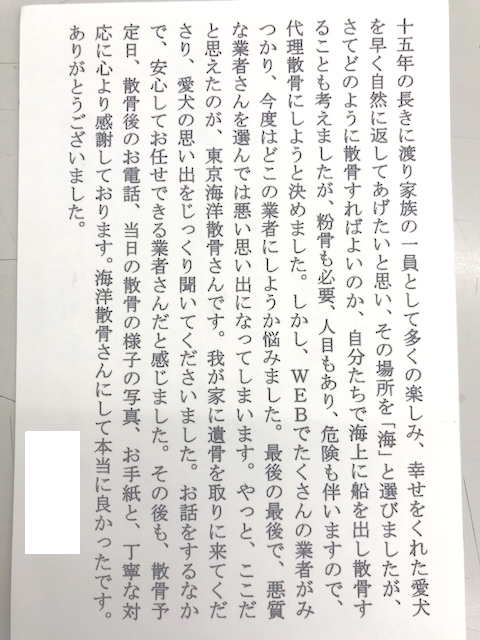 十五年の長きに渡り家族の一員として多くの楽しみ、幸せをくれた愛犬
を早く自然に返してあげたいと思い、その場所を「海」と選びましたが、
さてどのように散骨すればよいのか、自分たちで海上に船を出し散骨す
ることも考えましたが、粉骨も必要、人目もあり、危険も伴いますので、
代理散骨にしようと決めました。しかし、WEBでたくさんの業者がみ
つかり、今度はどこの業者にしようか悩みました。最後の最後で、悪質
な業者さんを選んでは悪い思い出になってしまいます。やっと、ここだ
と思えたのが、東京海洋散骨さんです。我が家に遺骨を取りに来てくだ
さり、愛犬の思い出をじっくり聞いてくださいました。お話をするなか
で、安心してお任せできる業者さんだと感じました。その後も、散骨予
定日、散骨後のお電話、当日の散骨の様子の写真、お手紙と、丁寧な対
応に心より感謝しております。海洋散骨さんにして本当に良かったです。
ありがとうございました。